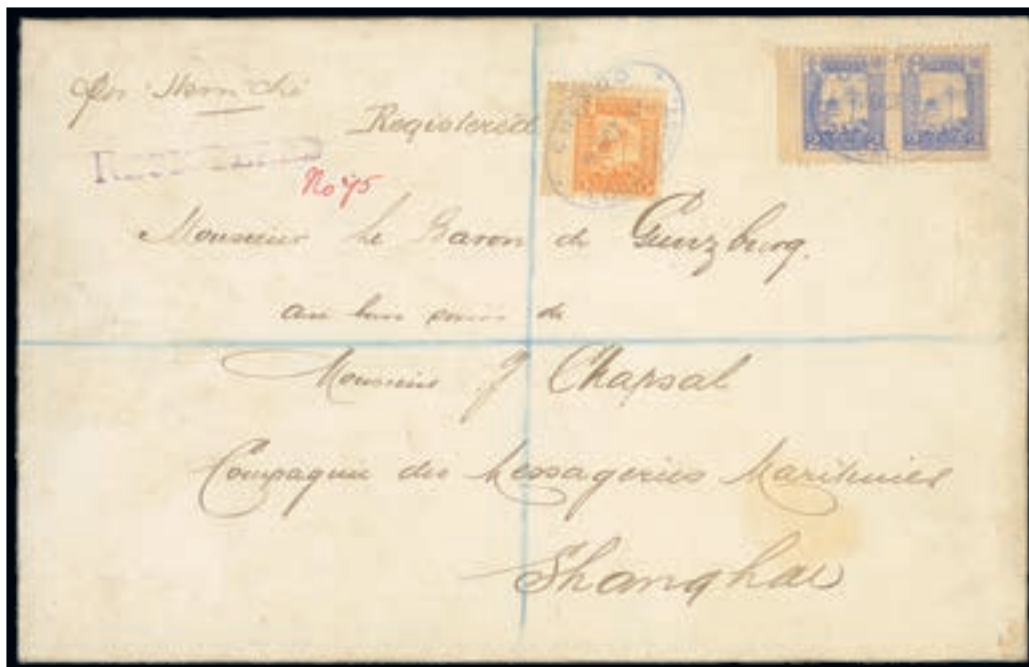 Registered
REGISTERED
No 75
Monsieur Le Baron de Gunzburg.
au bon soins de
Monsieur J Chapsal
Compagnie des Messageries Maritimes
Shanghai